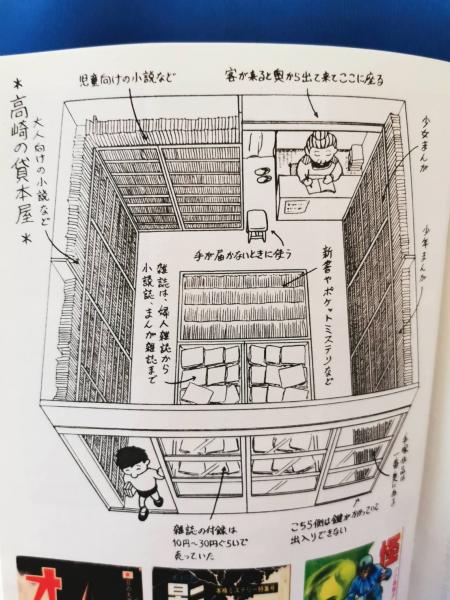 ＊高崎の貸本屋＊
大人向けの小説など
児童向けの小説など
客が来ると奥から出て来てここに座る
少女まんが
少年まんが
手が届かないときに使う
新書やポケットミステリなど
雑誌は、婦人雑誌から
小説誌、まんが雑誌まで
一番奥にある
雑誌の付録は
10円〜30円ぐらいで
売っていた
こちら側は鍵がかかっていて
出入りできない
オ
影
本格ミステリー特集号
怪